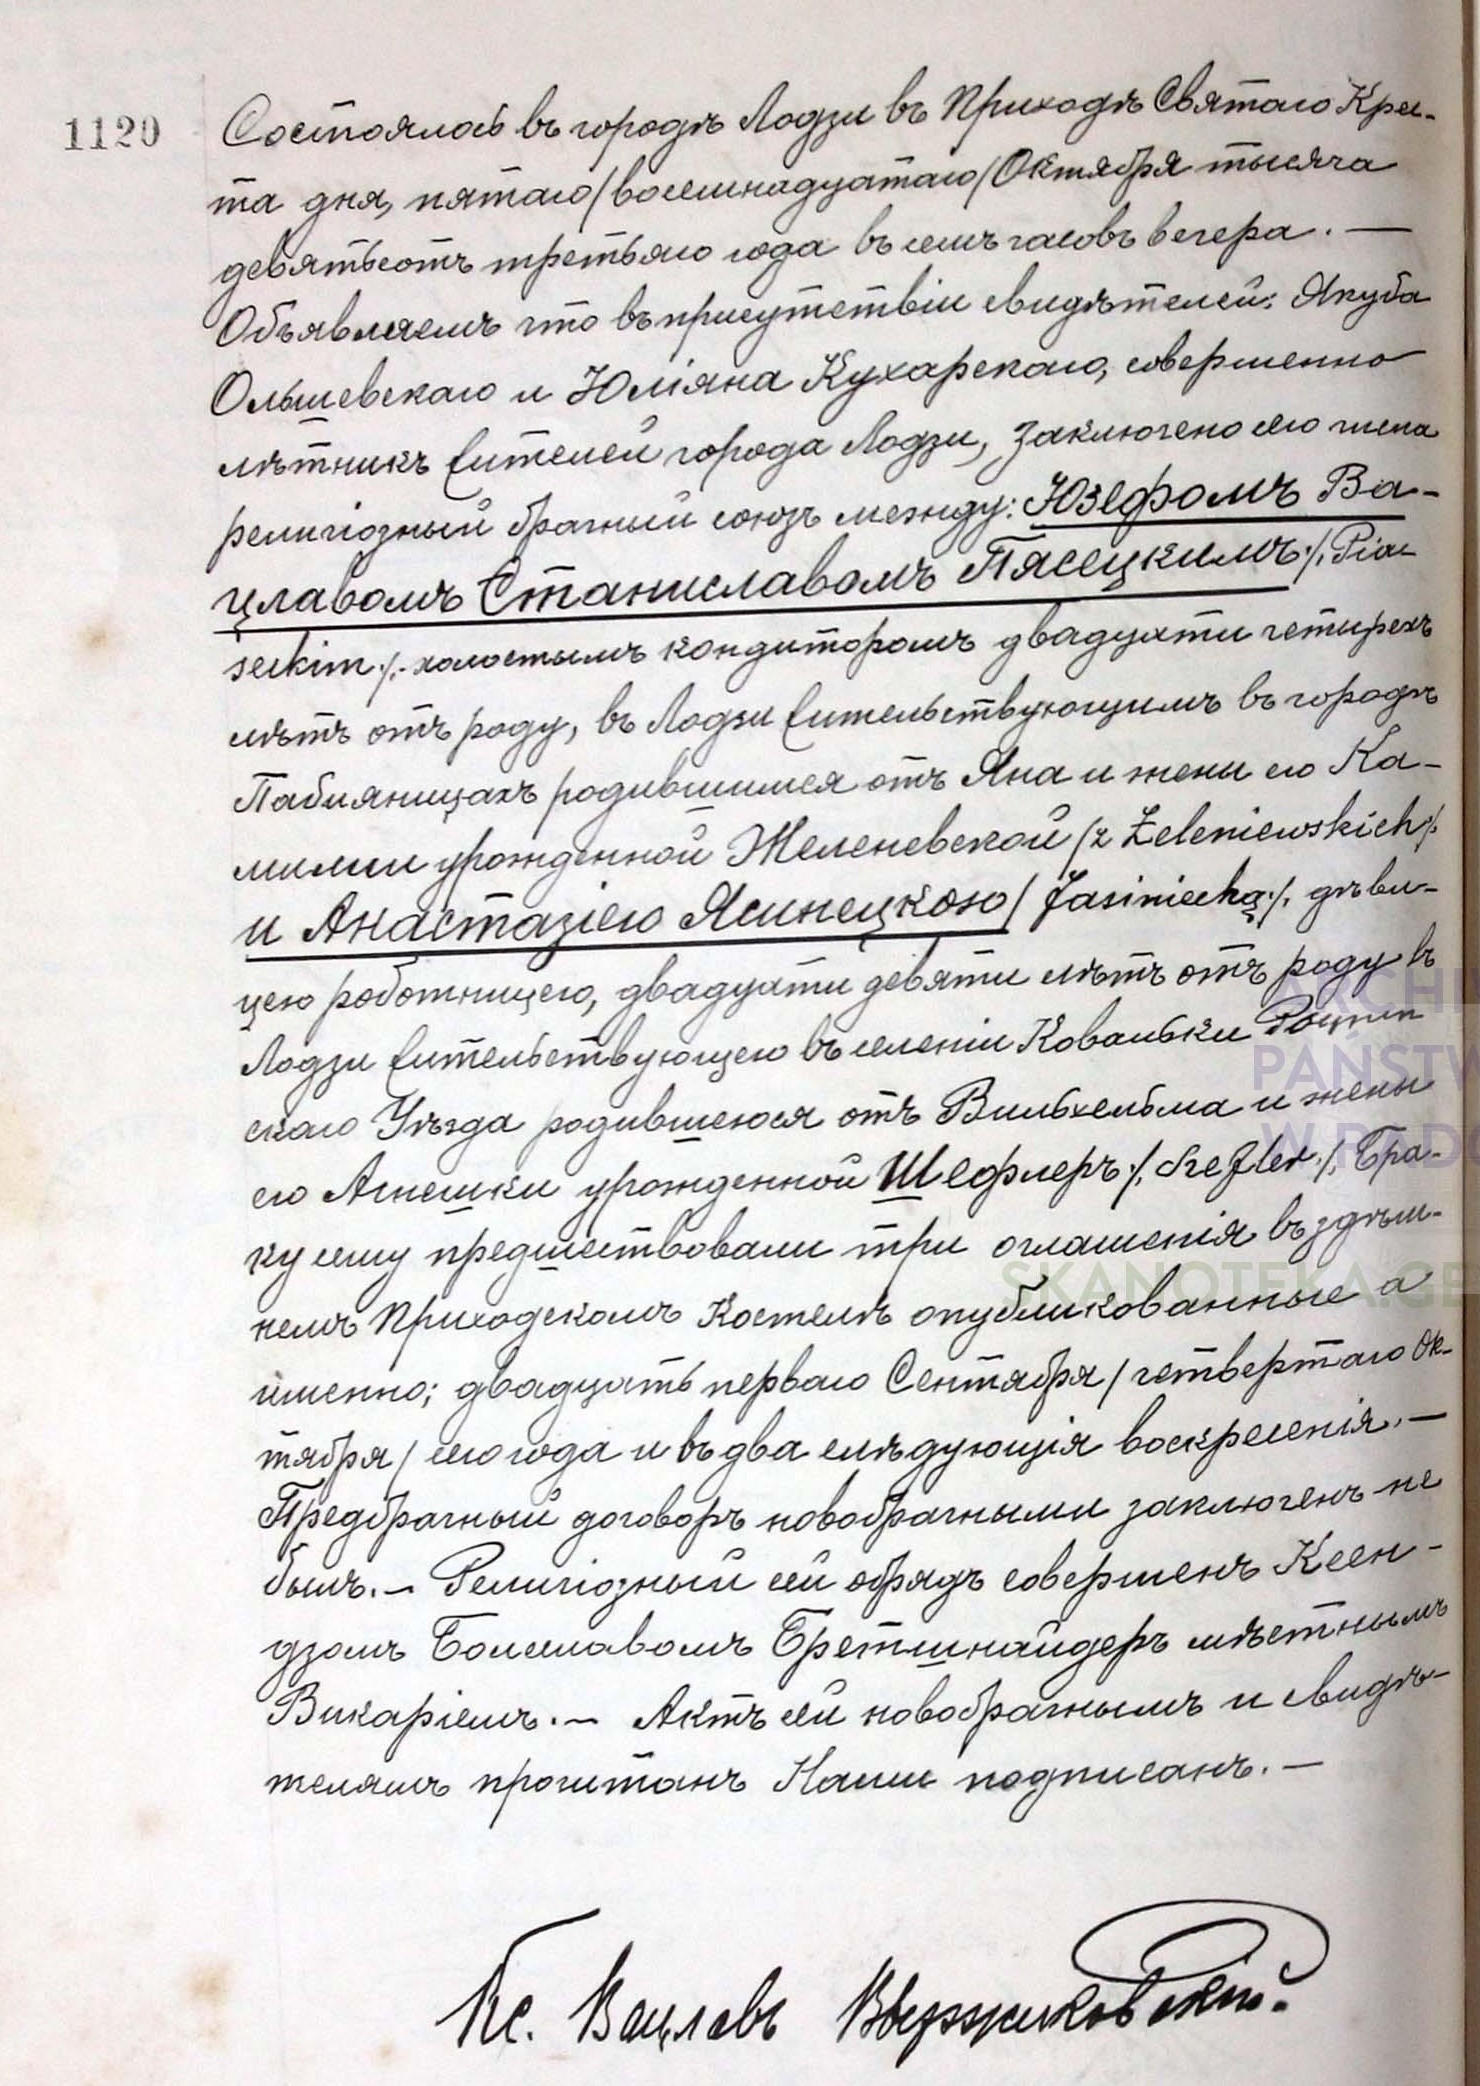 1120
Состоялось въ городѣ Лодзи въ Приходѣ Святаго Крес-
та дня, пятаго/восемнадцатаго/Октября тысяча
девятьсотъ третьяго года въ семь часовъ вечера. —
Объявляемъ что въ присутствіи свидѣтелей: Якуба
Ольшевскаго и Юліяна Кухарскаго, совершенно
лѣтникъ жителей города Лодзи, заключено сего числа
религіозный брачный союзъ между: Юзефомъ Ва-
цлавомъ Станиславомъ Пясецкимъ /. Pia-
seckim ./. холостымъ кондиторомъ двадцати четырехъ
лѣтъ отъ роду, въ Лодзи жительствующимъ въ городѣ
Пабіяницахъ родившимся отъ Яна и жены его Ка-
милии урожденной Желеневской /z Żeleniewskich/.
и Анастазіею Ясинецкою / Jasiniecką ./. дѣви-
цею работницею, двадцати девяти лѣтъ отъ роду въ
Лодзи жительствующею въ селеніи Ковальки
скаго Уѣзда родившеюся отъ Вильхельма и жены
его Агнешки урожденной Шефлеръ /. Szefler ./. Бра-
ку сему предшествовали три оглашенія въ здѣш-
немъ Приходскомъ Костелѣ опубликованные а
именно; двадцать перваго Сентября / четвертаго Ок-
тября / сего года и въ два слѣдующія воскресенія. —
Предбрачный договоръ новобрачными заключенъ не
былъ. — Религіозный сей обрядъ совершенъ Ксен-
дзомъ Болеславомъ Бретшнайдеръ мѣстнымъ
Викаріемъ. — Актъ сей новобрачнымъ и свидѣ-
телямъ прочитанъ Нами подписанъ. —
Кс. Вацлавъ
ARCHI
PAŃSTW
W RADO
SKANOTEKA.GE